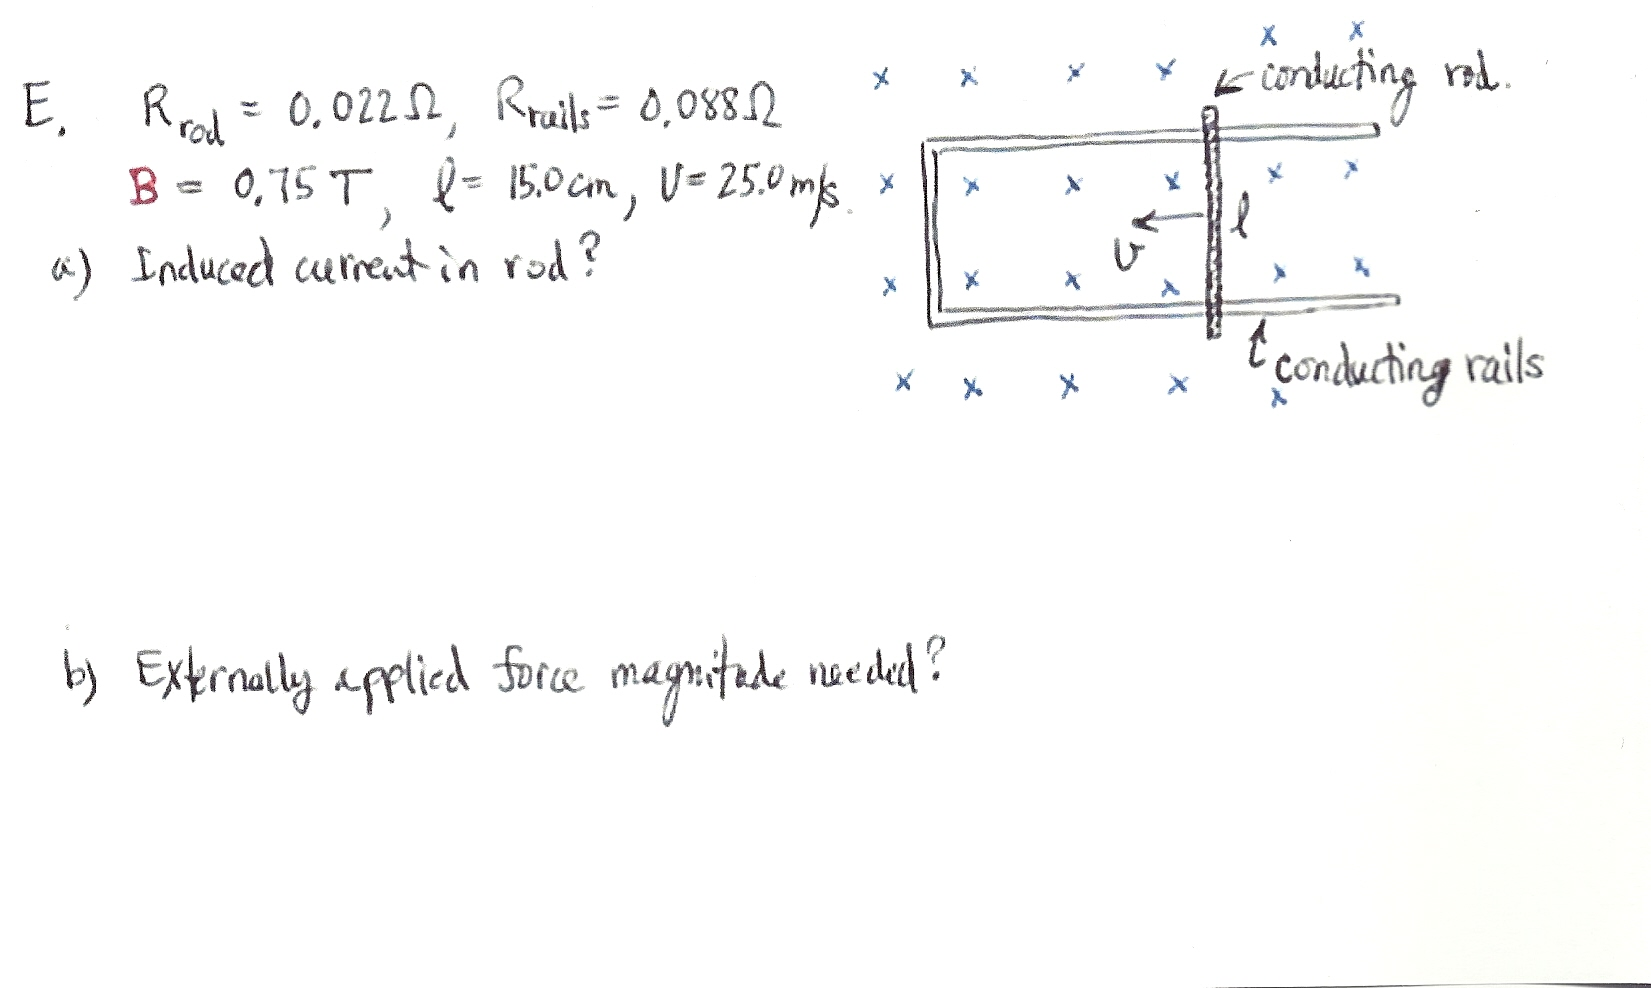 E. R rod = 0.022Ω, R rails = 0.088Ω
B = 0.75 T, l = 15.0 cm, v = 25.0 m/s.
a) Induced current in rod?
conducting rod.
v
l
conducting rails
b) Externally applied force magnitude needed?